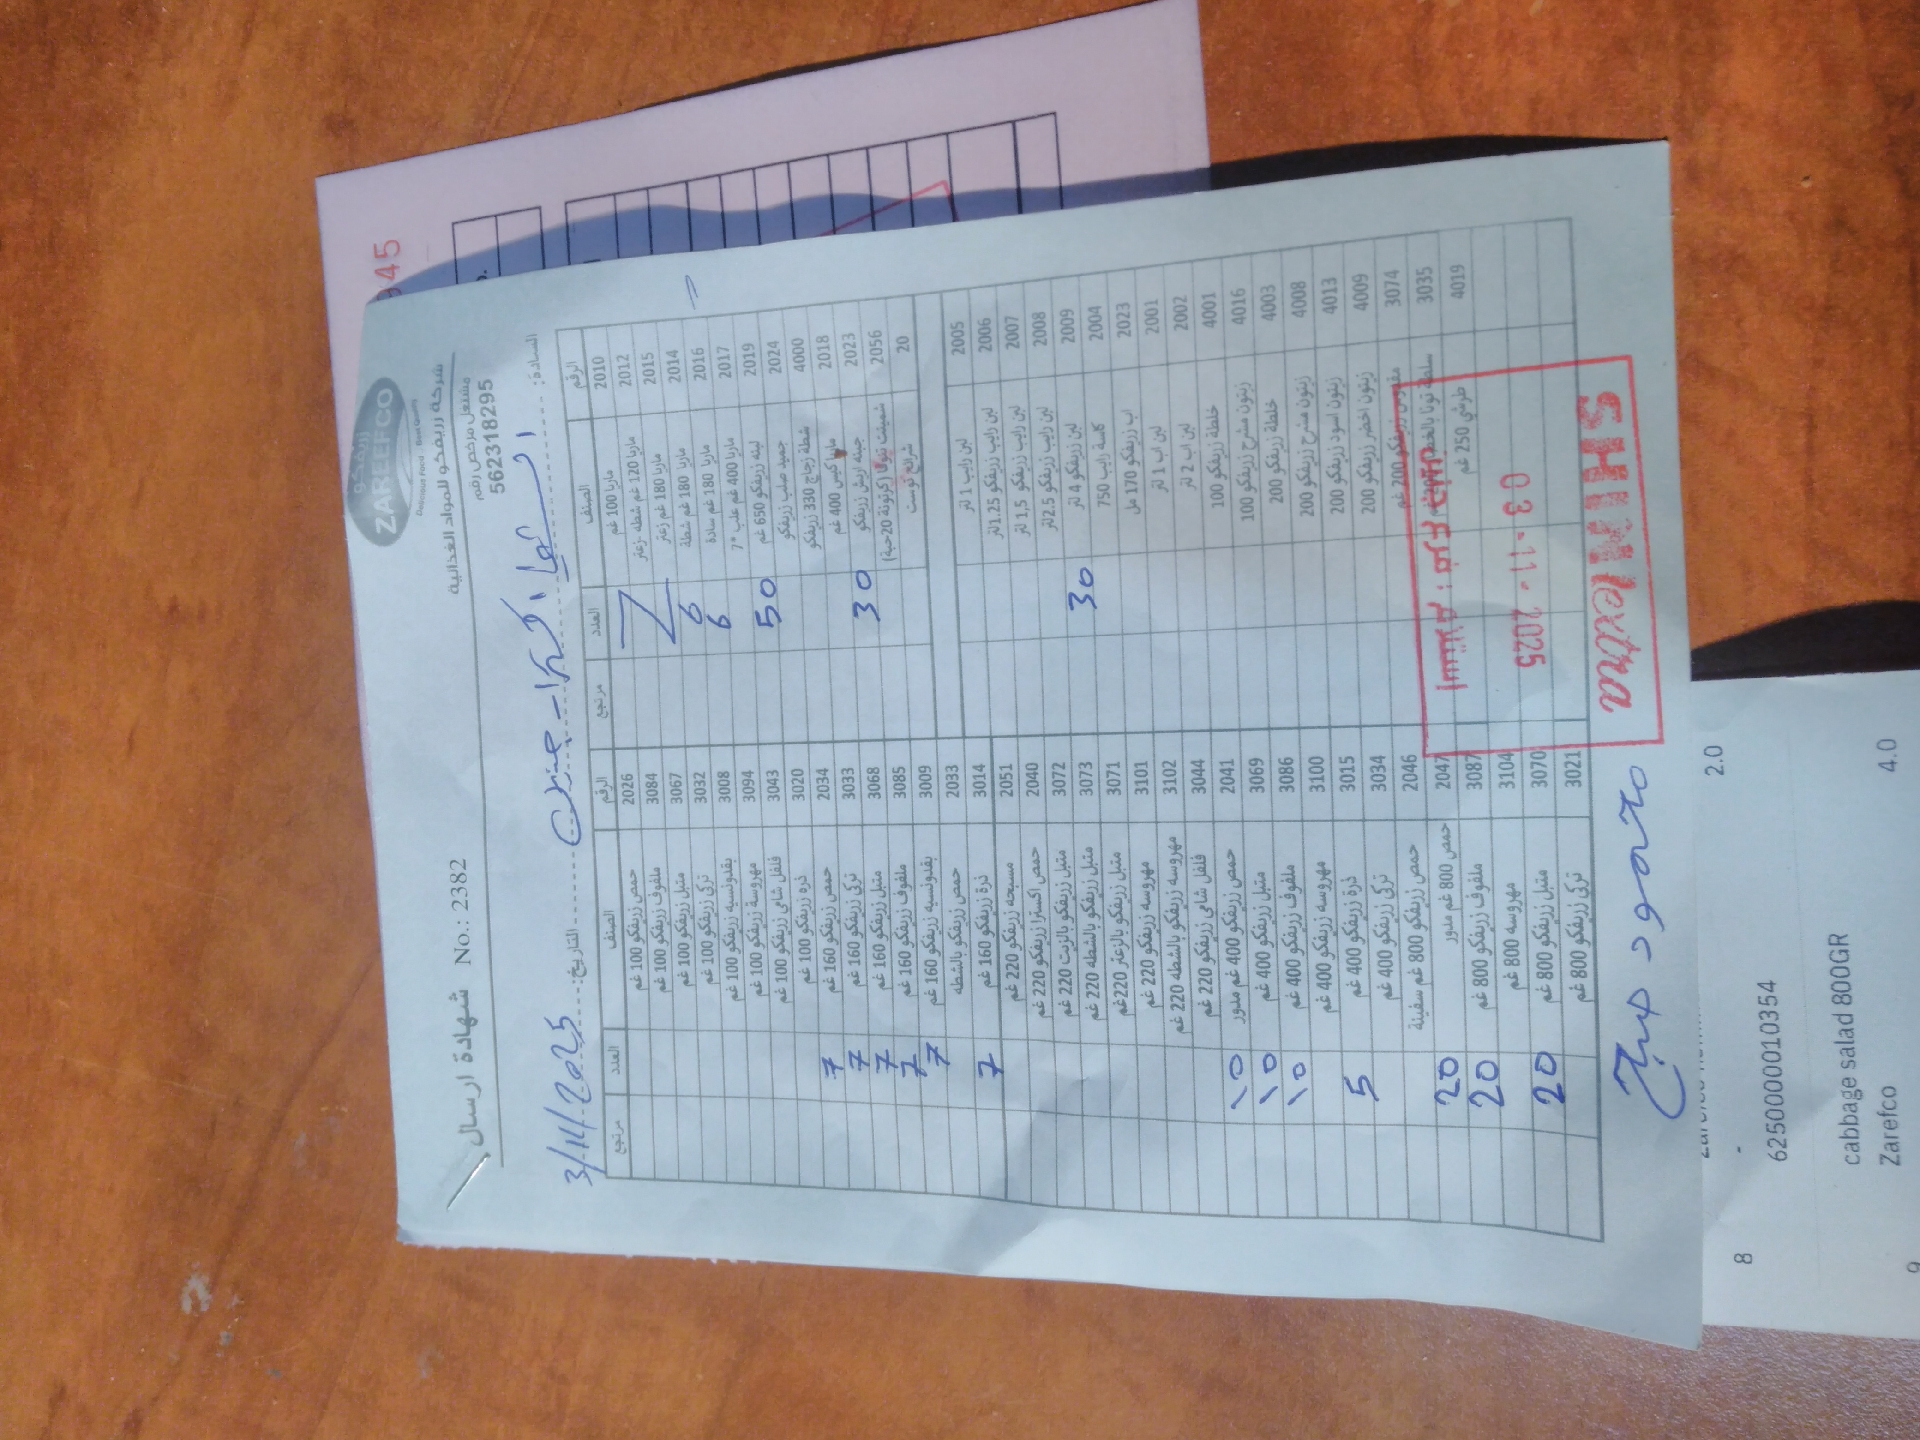 زريفكو
ZAREEFCO
Delicious Food - Best Quality
شركة زريفكو للمواد الغذائية
مشتغل مرخص رقم
562318295
شهادة ارسال No.: 2382
السادة: الشني اكسترا - جنين التاريخ: 3/11/2025
الرقم الصنف العدد مرتجع
2010 ماريا 100 غم
2012 ماريا 120 غم شطة -زعتر
2015 ماريا 180 غم زعتر
2014 ماريا 180 غم شطة
2016 ماريا 180 غم سادة 6
2017 ماريا 400 غم علب *7 6
2019 لبنه زريفكو 650 غم
2024 جميد صلب زريفكو 50
4000 شطة زجاج 330 زريفكو
2018 ماريا كيس 400 غم
2023 جبنه اريش زريفكو
2056 شمينت تنوفا (كرتونة 20حبة) 30
20 شرائح توست
2005 لبن رايب 1 لتر
2006 لبن رايب زريفكو 1.25لتر
2007 لبن رايب زريفكو 1,5 لتر
2008 لبن رايب زريفكو 2.5لتر
2009 لبن زريفكو 4 لتر
2004 كاسة رايب 750 30
2023 اب زريفكو 170 مل
2001 لبن اب 1 لتر
2002 لبن اب 2 لتر
4001 خلطة زريفكو 100
4016 زيتون مشرح زريفكو 100
4003 خلطة زريفكو 200
4008 زيتون مشرح زريفكو 200
4013 زيتون اسود زريفكو 200
4009 زيتون اخضر زريفكو 200
3074 مقدوس زريفكو 200 غم
3035 سلطة تونا بالخضار
4019 طرشي 250 غم
الرقم الصنف العدد مرتجع
2026 حمص زريفكو 100 غم
3084 ملفوف زريفكو 100 غم
3067 متبل زريفكو 100 غم
3032 تركي زريفكو 100 غم
3008 بقدونسيه زريفكو 100 غم
3094 مهروسة زريفكو 100 غم
3043 فلفل شامي زريفكو 100 غم
3020 ذرة زريفكو 100 غم
2034 حمص زريفكو 160 غم 7
3033 تركي زريفكو 160 غم 7
3068 متبل زريفكو 160 غم 7
3085 ملفوف زريفكو 160 غم 7
3009 بقدونسيه زريفكو 160 غم 7
2033 حمص زريفكو بالشطه
3014 ذرة زريفكو 160 غم 7
2051 مسبحه زريفكو 220 غم
2040 حمص اكسترا زريفكو 220 غم
3072 متبل زريفكو بالزيت 220 غم
3073 متبل زريفكو بالشطه 220 غم
3071 متبل زريفكو بالزعتر 220غم
3101 مهروسه زريفكو 220 غم
3102 مهروسه زريفكو بالشطه 220 غم
3044 فلفل شامي زريفكو 220 غم
2041 حمص زريفكو 400 غم مدور 10
3069 متبل زريفكو 400 غم 10
3086 ملفوف زريفكو 400 غم 10
3100 مهروسه زريفكو 400 غم
3015 ذرة زريفكو 400 غم 5
3034 تركي زريفكو 400 غم
2046 حمص زريفكو 800 غم سفينة
2047 حمص 800 غم مدور 20
3087 ملفوف زريفكو 800 غم 20
3104 مهروسه 800 غم
3070 متبل زريفكو 800 غم 20
3021 تركي زريفكو 800 غم
03-11-2025
SHINI extra
945
2.0
-
8
6250000010354
cabbage salad 800GR
Zarefco
4.0
9